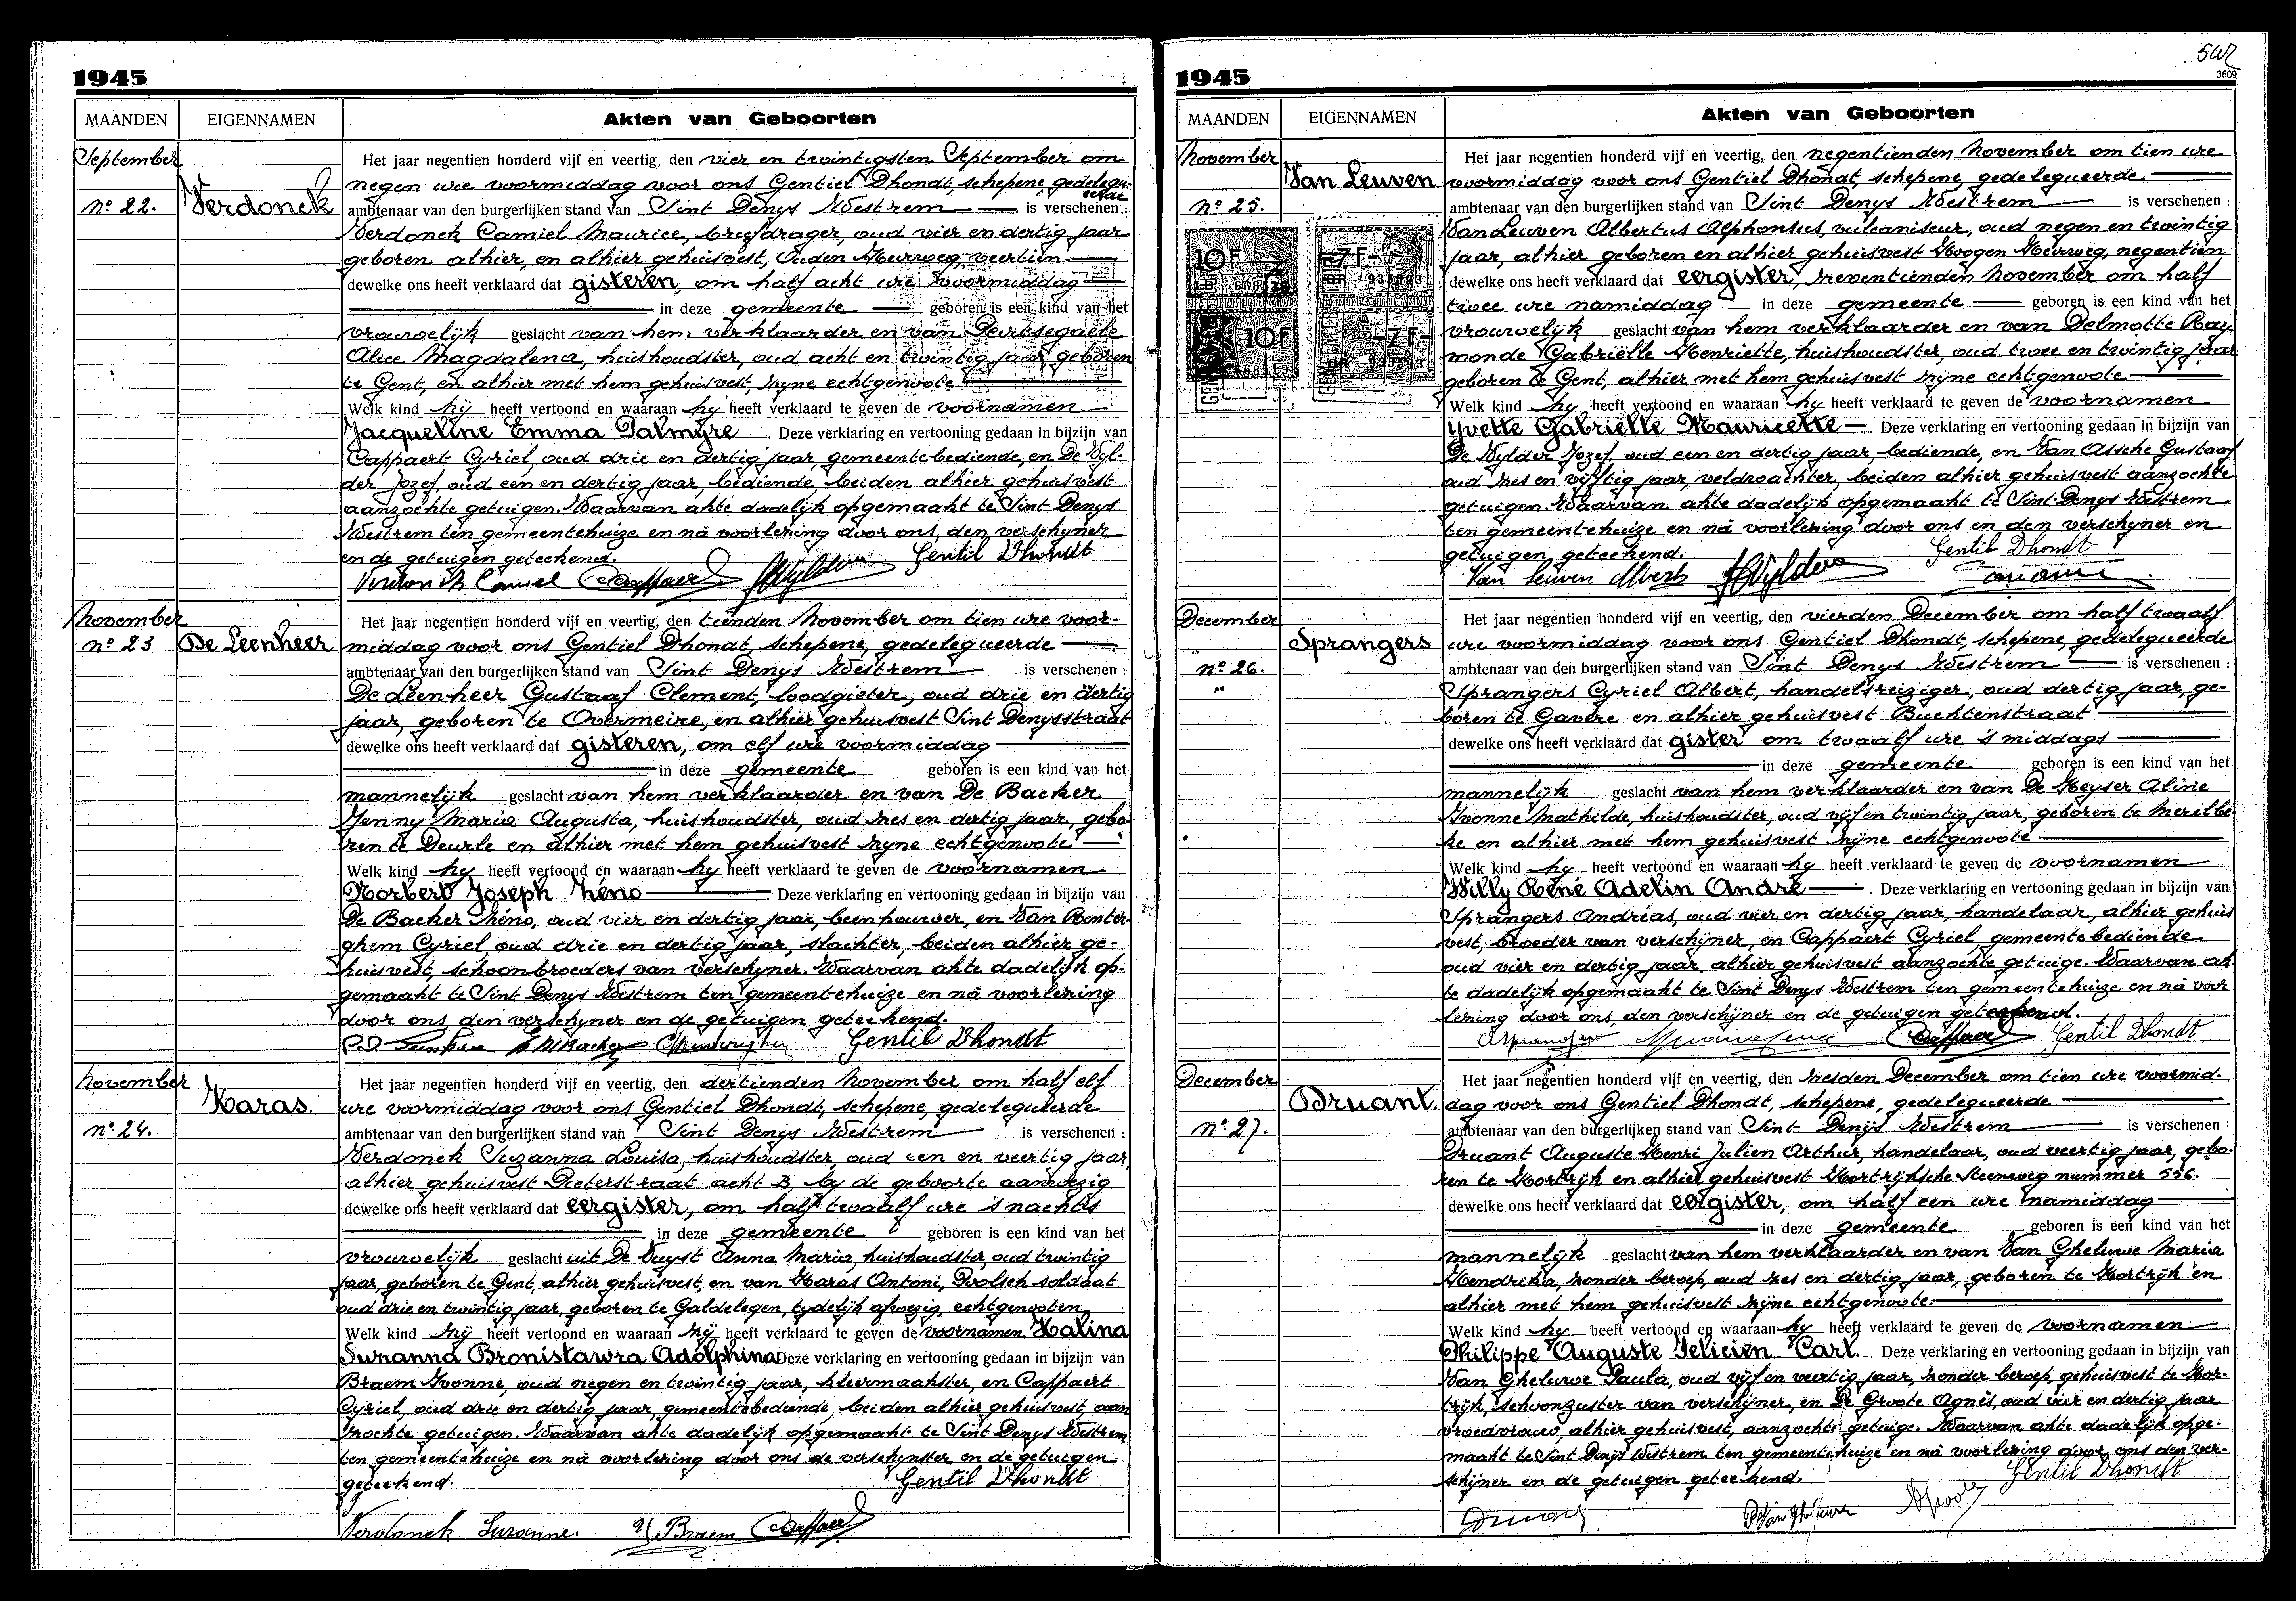 1945
MAANDEN EIGENNAMEN Akten van Geboorten
September
Het jaar negentien honderd vijf en veertig, den vier en twintigsten September om
negen ure voormiddag voor ons Gentiel Dhondt, schepene, gedelegu-
eerde
nº 22. Verdonck ambtenaar van den burgerlijken stand van Sint Denys Westrem is verschenen :
Verdonck Camiel Maurice, briefdrager, oud vier en dertig jaar
geboren alhier, en alhier gehuisvest, Ouden Heerweg, veertien
dewelke ons heeft verklaard dat gisteren, om half acht ure voormiddag
in deze gemeente geboren is een kind van het
vrouwelijk geslacht van hem verklaarder en van
Alice Magdalena, huishoudster, oud acht en twintig jaar, geboren
te Gent, en alhier met hem gehuisvest, zyne echtgenoote
Welk kind hij heeft vertoond en waaraan hy heeft verklaard te geven de voornamen
Jacqueline Emma Palmyre. Deze verklaring en vertooning gedaan in bijzijn van
Cappaert Cyriel, oud drie en dertig jaar, gemeentebediende, en De Wyl-
der Jozef, oud een en dertig jaar, bediende, beiden alhier gehuisvest
aanzochte getuigen. Waarvan akte dadelijk opgemaakt te Sint Denys
Westrem ten gemeentehuize en nà voorlezing door ons, den verschyner
en de getuigen geteekend. Gentil Dhondt
Verdonck Camiel
November
Het jaar negentien honderd vijf en veertig, den tienden November om tien ure voor-
nº 23 De Leenheer middag voor ons Gentiel Dhondt, schepene, gedelegueerde
ambtenaar van den burgerlijken stand van Sint Denys Westrem is verschenen :
De Leenheer Gustaaf Clement, loodgieter, oud drie en dertig
jaar, geboren te Overmeire, en alhier gehuisvest Sint Denysstraat
dewelke ons heeft verklaard dat gisteren, om elf ure voormiddag
in deze gemeente geboren is een kind van het
mannelijk geslacht van hem verklaarder en van De Backer
Jenny Maria Augusta, huishoudster, oud zes en dertig jaar, gebo-
ren te Deurle en alhier met hem gehuisvest zyne echtgenoote
Welk kind hy heeft vertoond en waaraan hy heeft verklaard te geven de voornamen
Norbert Joseph Zéno Deze verklaring en vertooning gedaan in bijzijn van
De Backer Zéno, oud vier en dertig jaar, beenhouwer, en Van Renter-
ghem Cyriel, oud drie en dertig jaar, slachter, beiden alhier ge-
huisvest, schoonbroeders van verschyner. Waarvan akte dadelijk op-
gemaakt te Sint Denys Westrem ten gemeentehuize en nà voorlezing
door ons, den verschyner en de getuigen geteekend.
Gentil Dhondt
November
Het jaar negentien honderd vijf en veertig, den dertienden November om half elf
Haras. ure voormiddag voor ons Gentiel Dhondt, schepene, gedelegueerde
nº 24. ambtenaar van den burgerlijken stand van Sint Denys Westrem is verschenen :
Verdonck Suzanna Louisa, huishoudster, oud een en veertig jaar,
alhier gehuisvest Pieterstraat acht B, by de geboorte aanwezig
dewelke ons heeft verklaard dat eergister, om half twaalf ure 's nachts
in deze gemeente geboren is een kind van het
vrouwelijk geslacht uit De Vuyst Anna Maria, huishoudster, oud twintig
jaar, geboren te Gent, alhier gehuisvest, en van Haras Antoni, Poolsch soldaat
oud drie en twintig jaar, geboren te Galdelegen, tydelijk afwezig, echtgenooten
Welk kind zij heeft vertoond en waaraan zij heeft verklaard te geven de voornamen Halina
Suzanna Bronistawra Adolphina Deze verklaring en vertooning gedaan in bijzijn van
Braem Yvonne, oud negen en twintig jaar, kleermaakster, en Cappaert
Cyriel, oud drie en dertig jaar, gemeentebediende, beiden alhier gehuisvest, aan
zochte getuigen. Waarvan akte dadelijk opgemaakt te Sint Denys Westrem
ten gemeentehuize en nà voorlezing door ons de verschynster en de getuigen
geteekend. Gentil Dhondt
Verdonck Suzanne. Y Braem
502
1945
3609
MAANDEN EIGENNAMEN Akten van Geboorten
November
Het jaar negentien honderd vijf en veertig, den negentienden November om tien ure
Van Leuven voormiddag voor ons Gentiel Dhondt, schepene, gedelegueerde
nº 25. ambtenaar van den burgerlijken stand van Sint Denys Westrem is verschenen :
Van Leuven Albertus Alphonsus, vulcaniseur, oud negen en twintig
jaar, alhier geboren en alhier gehuisvest Hoogen Heirweg, negentien
10F
dewelke ons heeft verklaard dat eergister, zeventienden November om half
twee ure namiddag in deze gemeente geboren is een kind van het
vrouwelijk geslacht van hem verklaarder en van Delmotte Ray-
10F
monde Gabriëlle Henriette, huishoudster, oud twee en twintig jaar
geboren te Gent, alhier met hem gehuisvest zijne echtgenoote
Welk kind hy heeft vertoond en waaraan hy heeft verklaard te geven de voornamen
Yvette Gabriëlle Mauricette. Deze verklaring en vertooning gedaan in bijzijn van
De Wylder Jozef, oud een en dertig jaar, bediende, en Van Assche Gustaaf
oud zes en vijftig jaar, veldwachter, beiden alhier gehuisvest aanzochte
getuigen. Waarvan akte dadelijk opgemaakt te Sint-Denys Westrem
ten gemeentehuize en nà voorlezing door ons en den verschyner en
getuigen, geteekend. Gentil Dhondt
Van Leuven Albert
December
Het jaar negentien honderd vijf en veertig, den vierden December om half twaalf
Sprangers ure voormiddag voor ons Gentiel Dhondt, schepene, gedelegueerde
nº 26. ambtenaar van den burgerlijken stand van Sint Denys Westrem is verschenen :
Sprangers Cyriel Albert, handelsreiziger, oud dertig jaar, ge-
boren te Gavere en alhier gehuisvest Buchtenstraat
dewelke ons heeft verklaard dat gister om twaalf ure 's middags
in deze gemeente geboren is een kind van het
mannelijk geslacht van hem verklaarder en van De Keyser Aline
Yvonne Mathilde, huishoudster, oud vijf en twintig jaar, geboren te Merelbe-
ke en alhier met hem gehuisvest zijne echtgenoote
Welk kind hy heeft vertoond en waaraan hy heeft verklaard te geven de voornamen
Willy René Adelin André. Deze verklaring en vertooning gedaan in bijzijn van
Sprangers Andréas, oud vier en dertig jaar, handelaar, alhier gehuis
vest, broeder van verschijner, en Cappaert Cyriel, gemeentebediende
oud vier en dertig jaar, alhier gehuisvest aanzochte getuige. Waarvan ak
te dadelijk opgemaakt te Sint Denys Westrem ten gemeentehuize en nà voor
lezing door ons, den verschijner en de getuigen geteekend.
Gentil Dhondt
December
Het jaar negentien honderd vijf en veertig, den zesden December om tien ure voormid-
Druant. dag voor ons Gentiel Dhondt, schepene, gedelegueerde
nº 27. ambtenaar van den burgerlijken stand van Sint Denys Westrem is verschenen :
Druant Auguste Henri Julien Arthur, handelaar, oud veertig jaar, gebo-
ren te Kortrijk en alhier gehuisvest Kortrijksche Steenweg nummer 556.
dewelke ons heeft verklaard dat eergister, om half een ure namiddag
in deze gemeente geboren is een kind van het
mannelijk geslacht van hem verklaarder en van Van Gheluwe Maria
Hendrika, zonder beroep, oud zes en dertig jaar, geboren te Kortrijk en
alhier met hem gehuisvest zijne echtgenoote.
Welk kind hy heeft vertoond en waaraan hy heeft verklaard te geven de voornamen
Philippe Auguste Félicien Carl. Deze verklaring en vertooning gedaan in bijzijn van
Van Gheluwe Paula, oud vijf en veertig jaar, zonder beroep, gehuisvest te Kor-
trijk, schoonzuster van verschijner, en De Groote Agnès, oud vier en dertig jaar
vroedvrouw, alhier gehuisvest, aanzochte getuige. Waarvan akte dadelijk opge-
maakt te Sint Denys Westrem ten gemeentehuize en nà voorlezing door ons den ver-
schijner en de getuigen geteekend. Gentil Dhondt